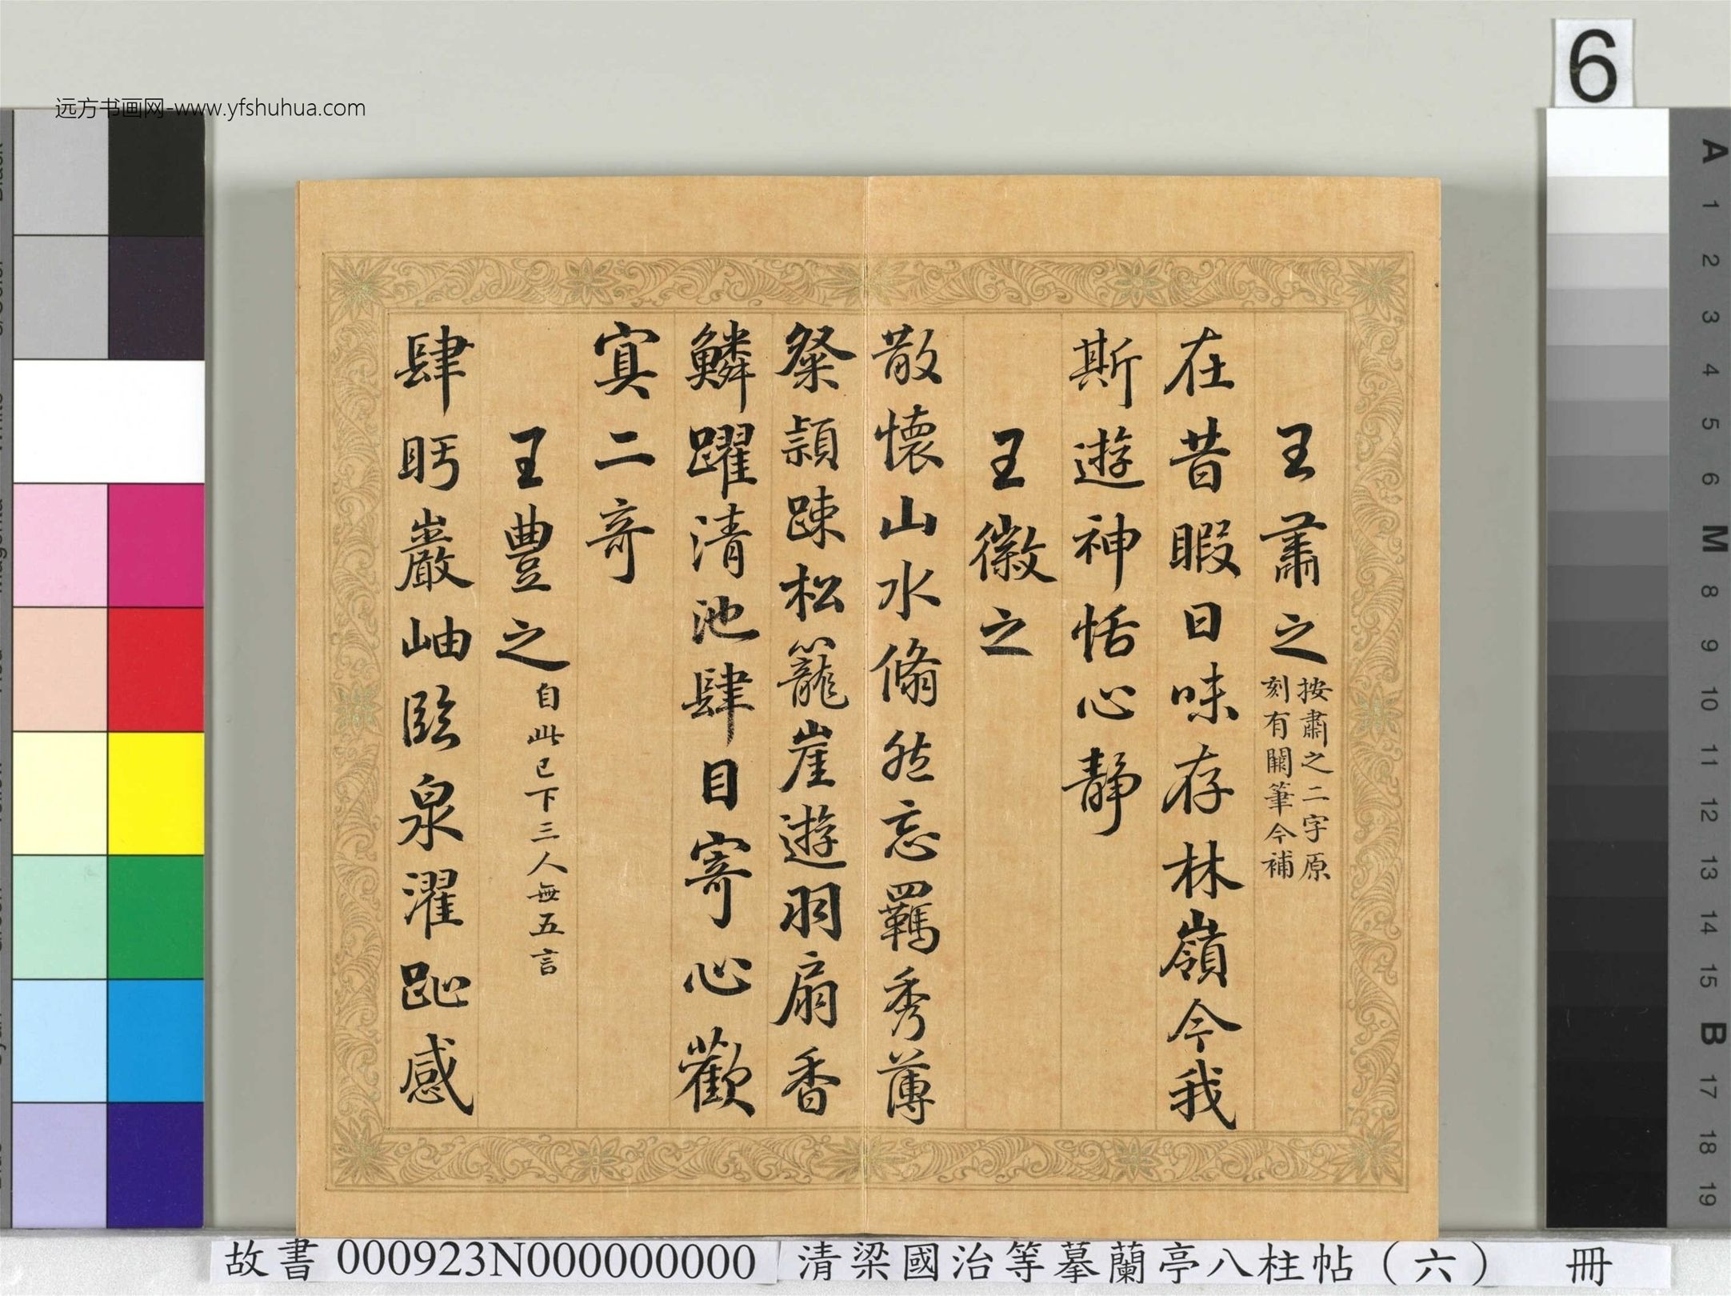 远方书画网-www.yfshuhua.com
6
王肅之
按肅之二字原
刻有闕筆今補
在昔暇日味存林嶺今我
斯遊神恬心靜
王徽之
散懷山水翛然忘羈秀薄
粲穎踈松籠崖遊羽扇香
鱗躍清池肆目寄心歡
寘二奇
王豊之
自此已下三人無五言
肆眄巖岫臨泉濯趾感
A
1
2
3
4
5
6
M
8
9
10
11
12
13
14
15
B
17
18
19
故書 000923N000000000 清梁國治等摹蘭亭八柱帖（六） 冊